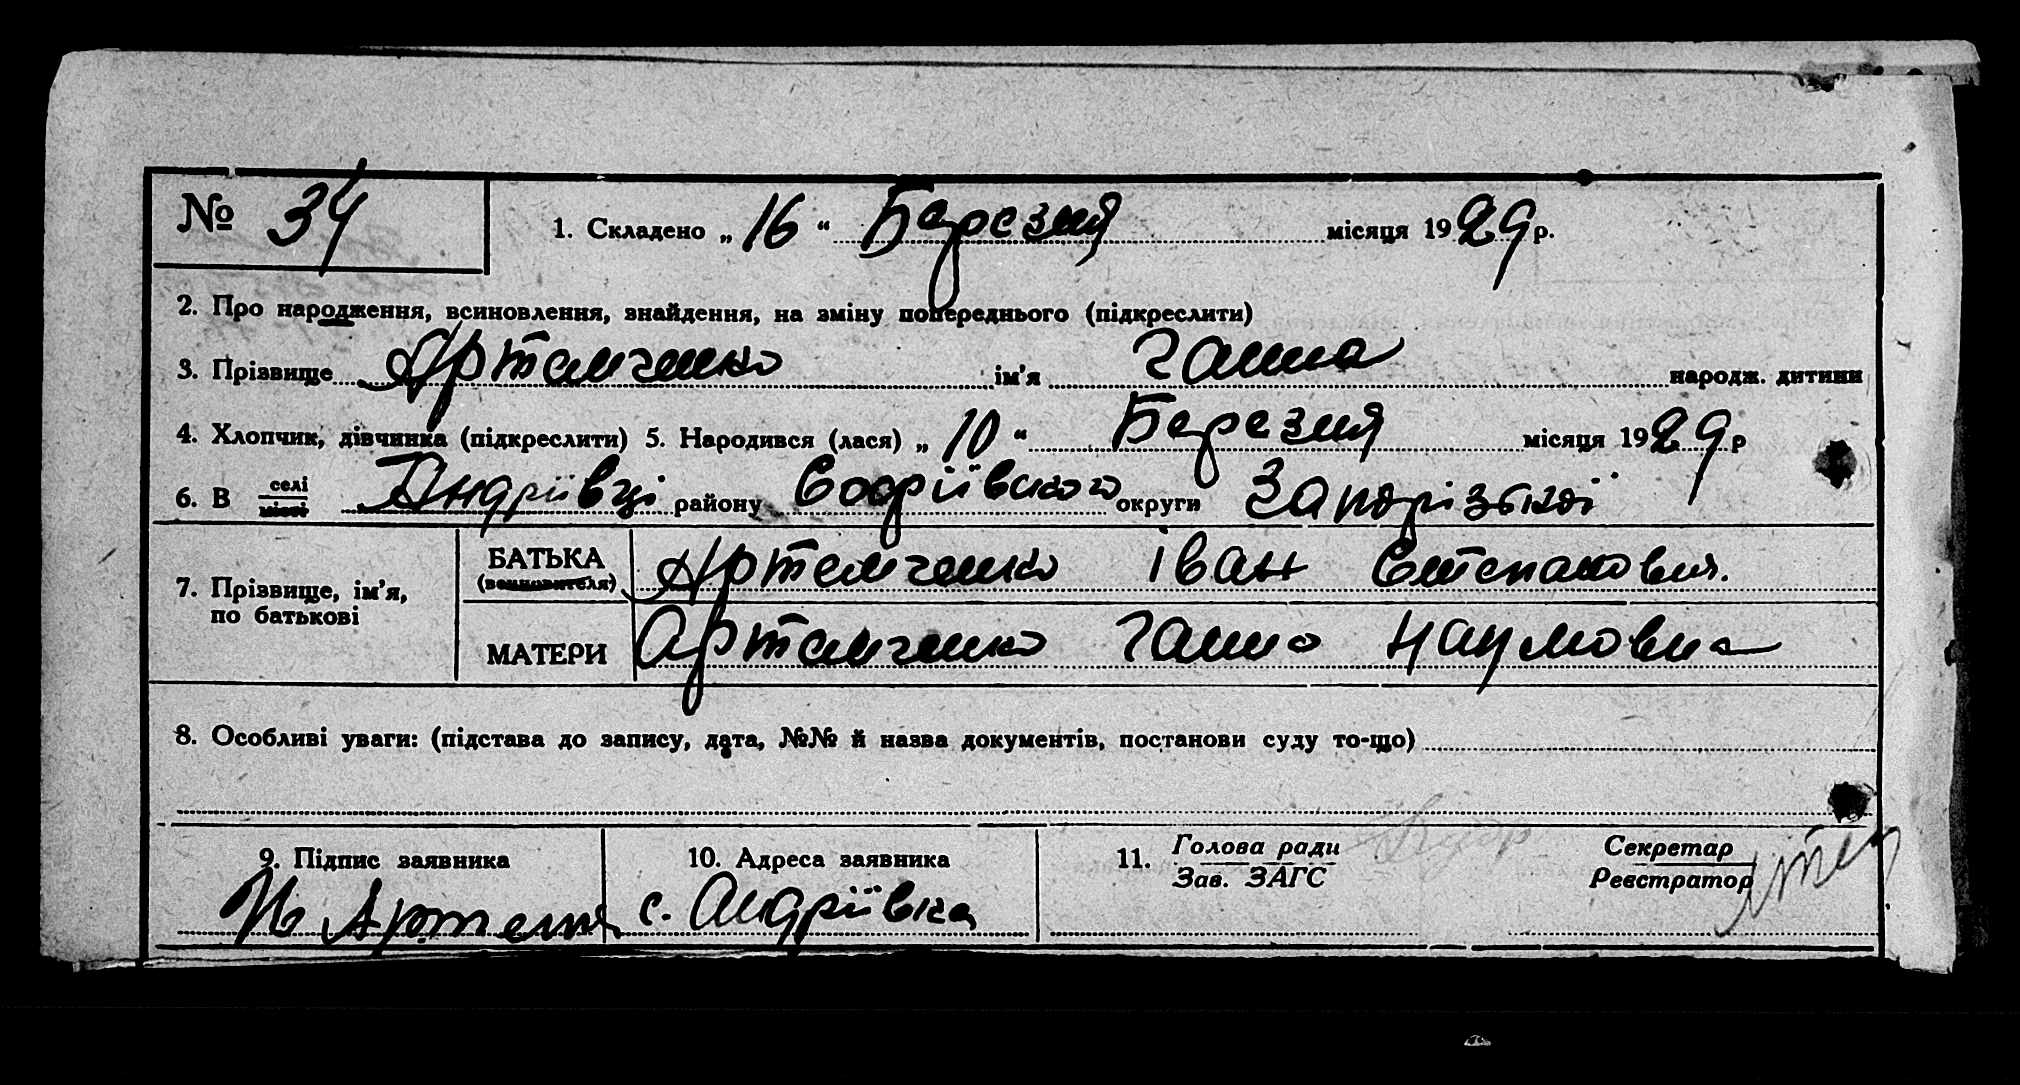 № 34
1. Складено „ 16 “ Березня місяця 1929 р.
2. Про народження, всиновлення, знайдення, на зміну попереднього (підкреслити)
3. Прізвище Артемченко ім'я Ганна народж. дитини
4. Хлопчик, дівчинка (підкреслити) 5. Народився (лася) „ 10 “ Березня місяця 1929 р
6. В селі
місті Андріївці району Софіївского округи Запорізької
7. Прізвище, ім'я, по батькові
БАТЬКА (всиновителя) Артемченко Іван Степанович.
МАТЕРИ Артемченко Ганна Наумовна
8. Особливі уваги: (підстава до запису, дата, №№ й назва документів, постанови суду то-що)
9. Підпис заявника
10. Адреса заявника
с. Андріївка
11. Голова ради
Зав. ЗАГС
Секретар
Реєстратор